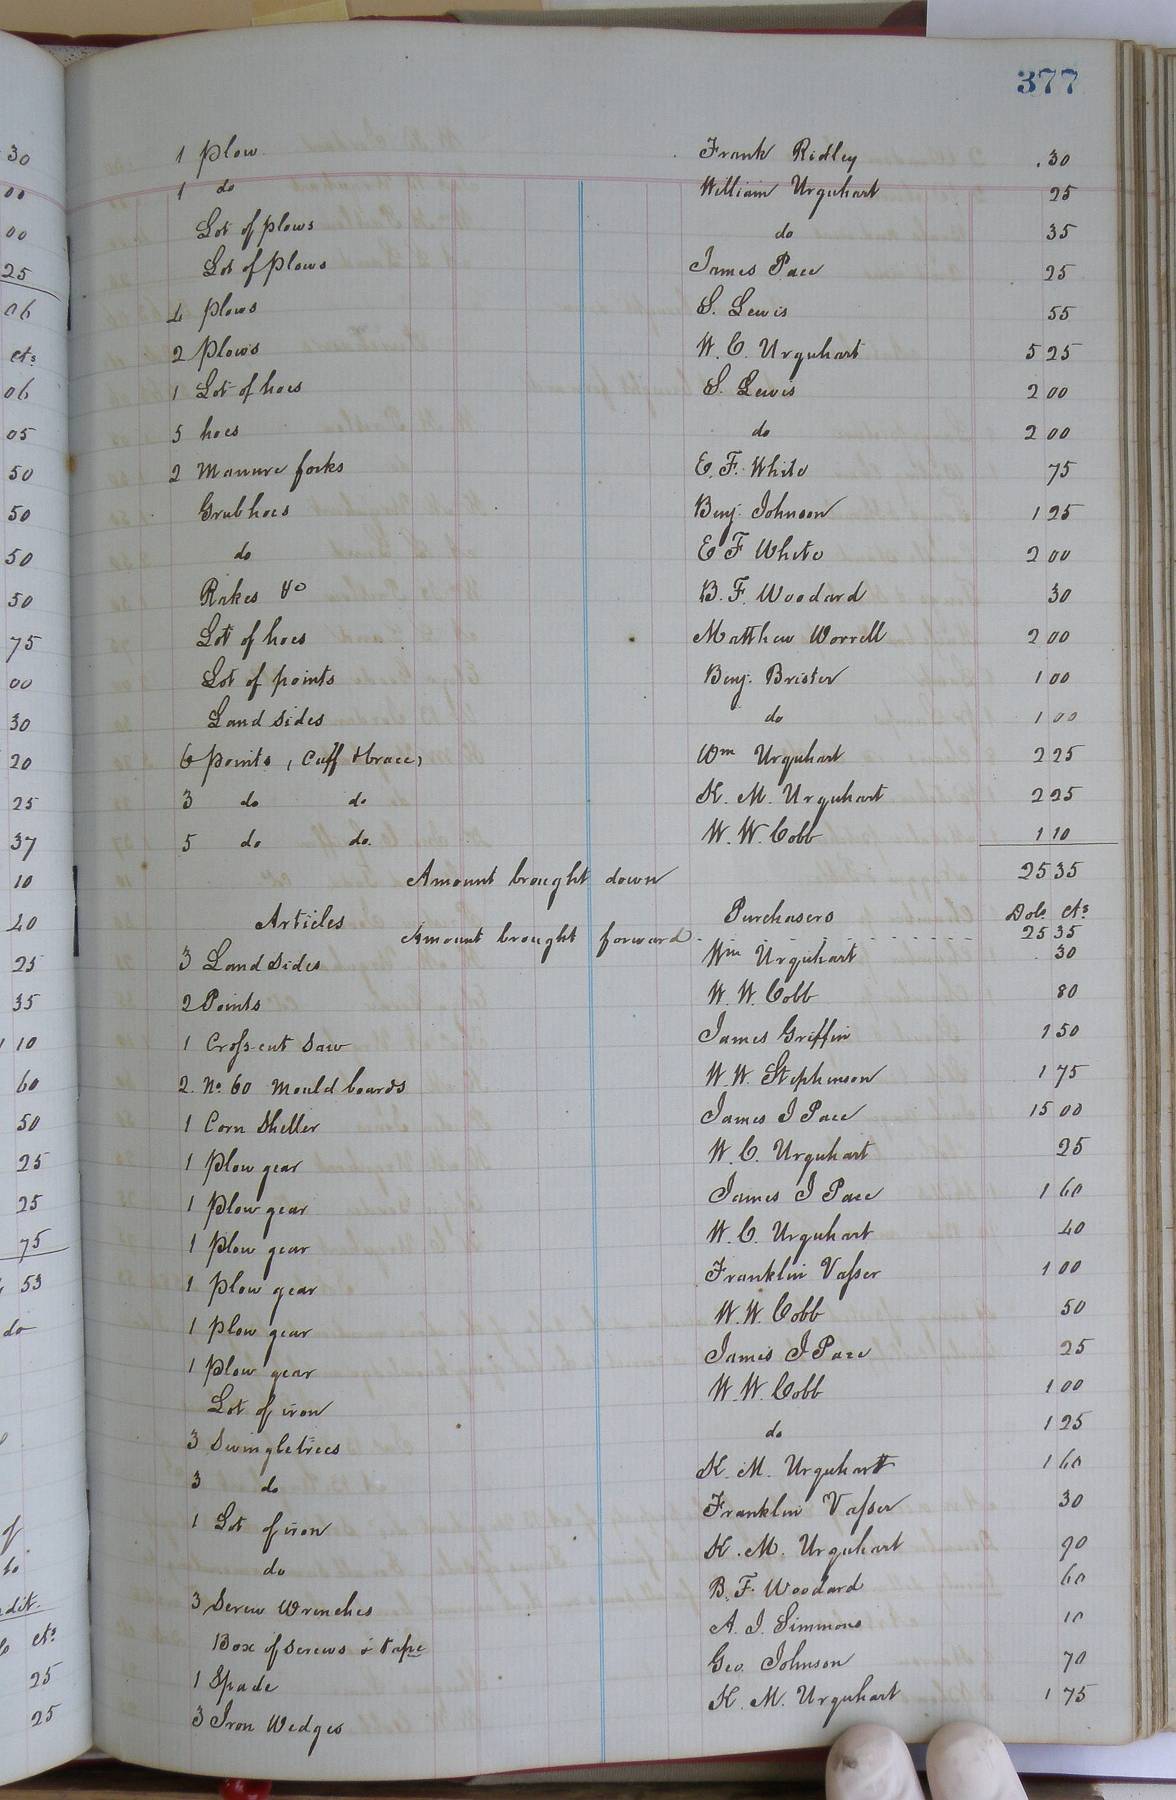 377
1 Plow Frank Ridley .30
1 do William Urquhart 25
Lot of plows do 35
Lot of Plows James Pace 25
4 Plows S. Lewis 55
2 Plows W. C. Urquhart 5 25
1 Lot of hoes S. Lewis 2 00
5 hoes do 2 00
2 Manure forks E. F. White 75
Grubhoes Benj. Johnson 1 25
do E F White 2 00
Rakes &c B. F. Woodard 30
Lot of hoes Matthew Worrell 2 00
Lot of points Benj. Brister 1 00
Land sides do 1 00
6 points, Cuff & brace, Wm Urquhart 2 25
3 do do K. M. Urquhart 2 25
5 do do. W. W. Cobb 1 10
Amount brought down 25 35
Articles Purchasers Dols cts
Amount brought forward 25 35
3 Land Sides Wm Urquhart 30
2 Points W. W. Cobb 80
1 Cross-cut Saw James Griffin 1 50
2. No. 60 Mouldboards W. W. Stephenson 1 75
1 Corn Sheller James J Pace 15 00
1 Plow gear W. C. Urquhart 25
1 Plow gear James J Pace 1 60
1 Plow gear W. C. Urquhart 40
1 Plow gear Franklin Vasser 1 00
1 Plow gear W. W. Cobb 50
1 Plow gear James J Pace 25
Lot of iron W. W. Cobb 1 00
3 Swingletrees do 1 25
3 do K. M. Urquhart 1 60
1 Lot of iron Franklin Vasser 30
do K. M. Urquhart 90
3 Screw Wrenches B. F. Woodard 60
Box of screws & tape A. J. Simmons 10
1 Spade Geo. Johnson 70
3 Iron Wedges K. M. Urquhart 1 75
30
00
00
25
06
cts
06
05
50
50
50
50
75
00
30
20
25
37
10
40
25
35
10
60
50
25
25
75
53
do
of
to
cts
25
25